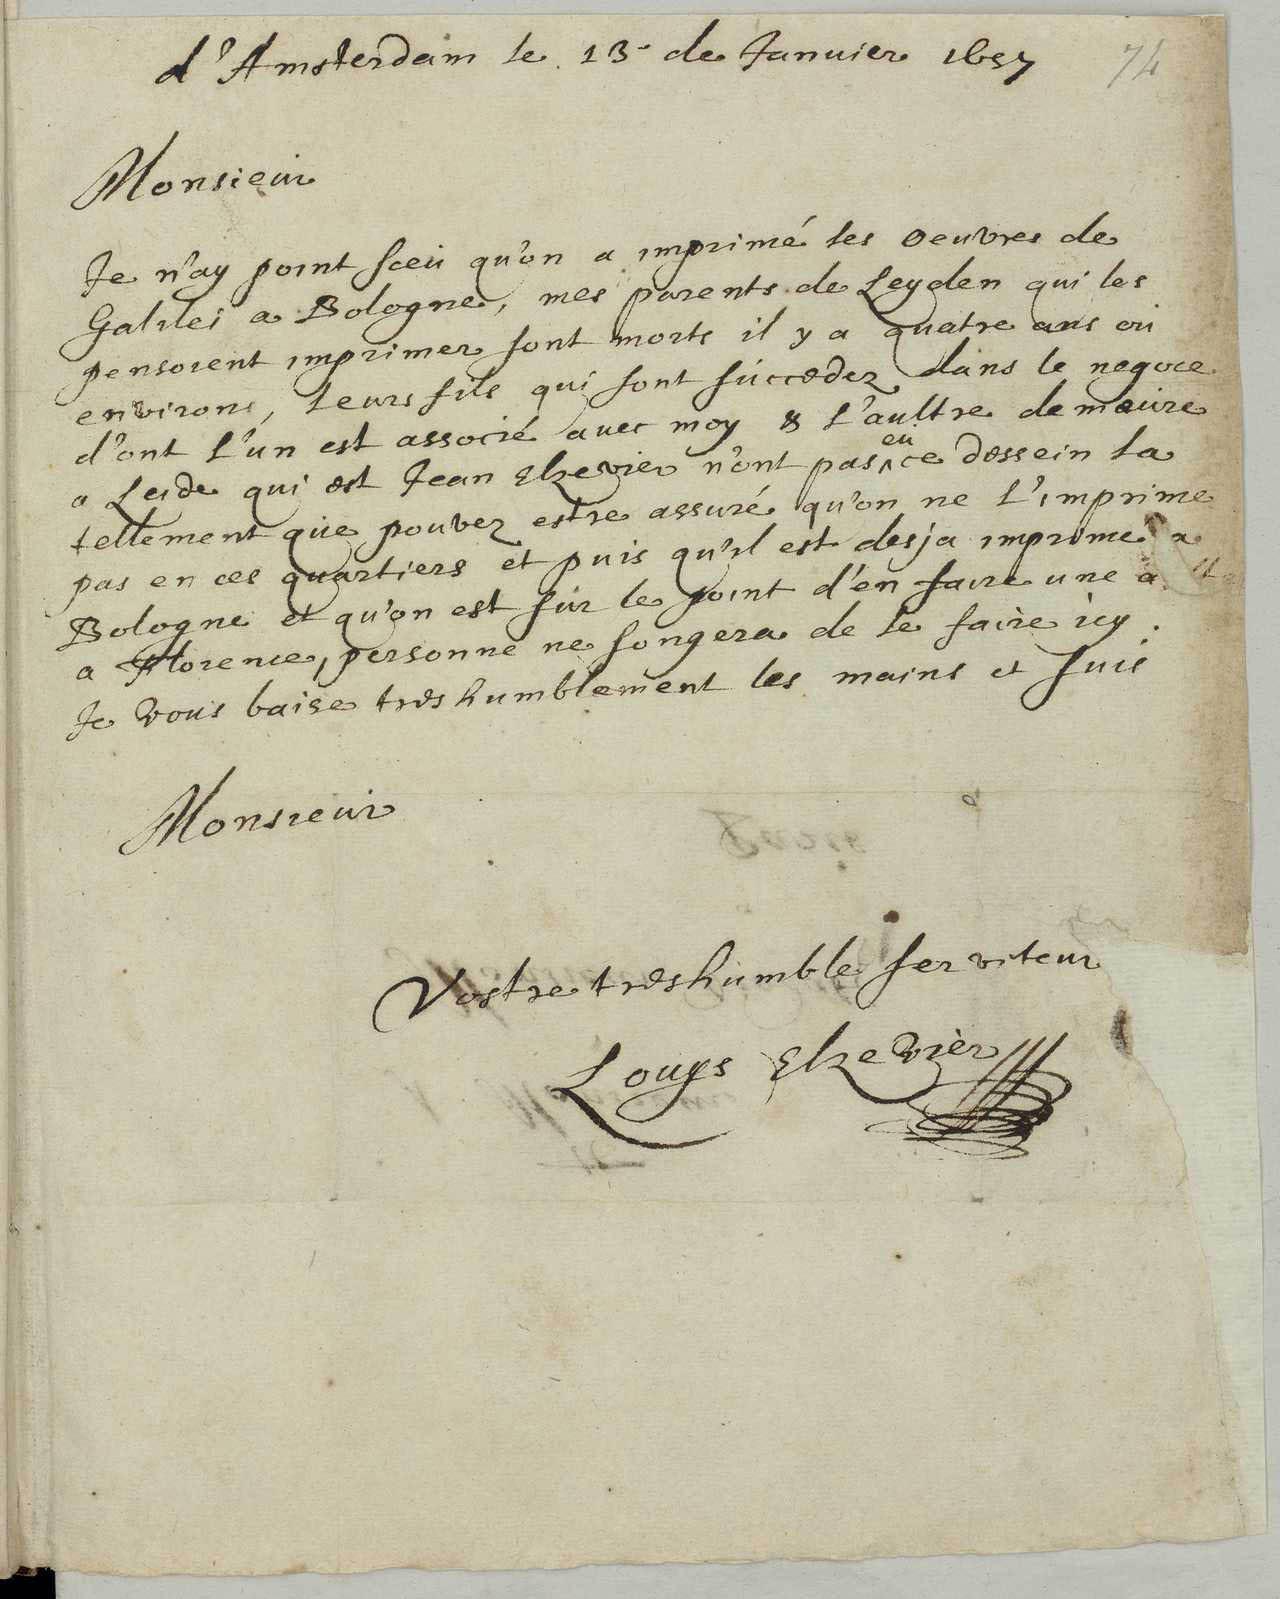 d'Amsterdam le 13 de Januier 1657
74
Monsieur
Je n'ay point sceu qu'on a imprimé les oeuvres de
Galilei a Bologne, mes parents de Leyden qui les
pensoient imprimer sont morts il y a quatre ans ou
environs, leurs fils qui sont succedez dans le negoce
d'ont l'un est associé avec moy & l'aultre demeure
a Leide qui est Jean Elzevier n'ont pas eu ce dessein la
tellement que pouvez estre assuré qu'on ne l'imprime
pas en ces quartiers et puis qu'il est desja imprimé a
Bologne et qu'on est sur le point d'en faire une
a Florence, personne ne songera de le faire icy.
Je vous baise treshumblement les mains et suis
Monsieur
Vostre treshumble serviteur
Louys Elzevier